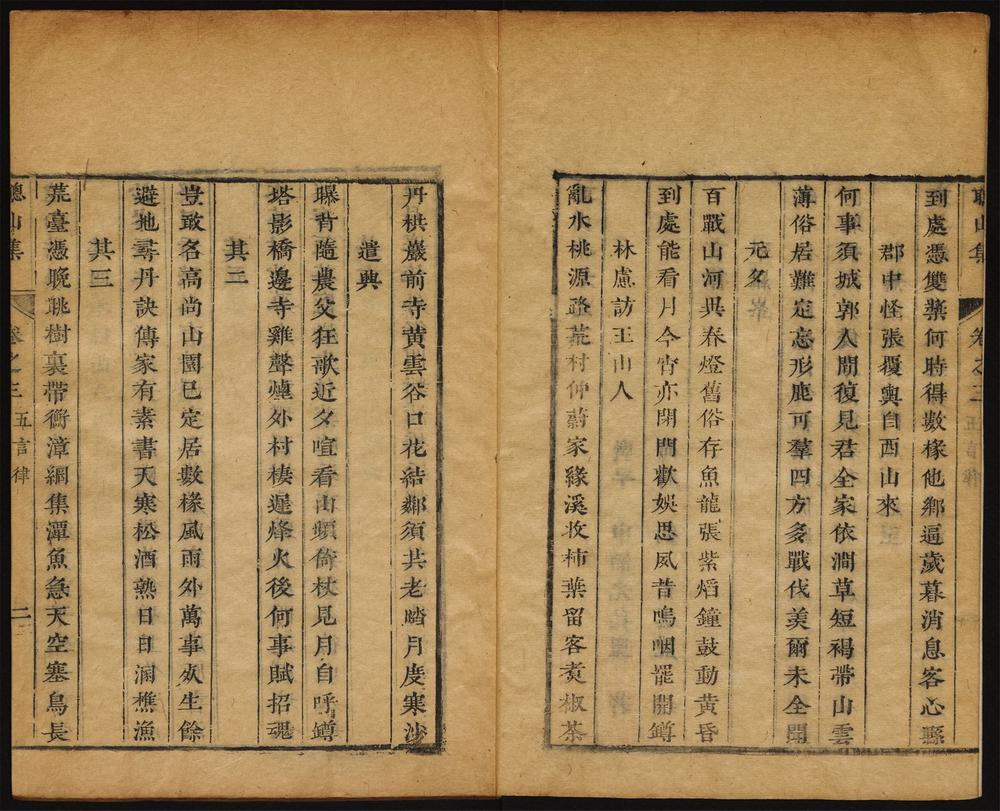 聰山集 卷之三 五言律
到處憑雙藥何時得數椽他鄉逼歲暮消息客心縣
郡中怪張覆輿自西山來
何事須城郭人間復見君全家依澗草短褐帶山雲
薄俗居難定忘形鹿可羣四方多戰伐羡爾未全聞
元夕
百戰山河異春燈舊俗存魚龍張紫熖鐘鼓動黃昏
到處能看月今宵亦閉門歡娛思夙昔嗚咽罷開鐏
林慮訪王山人
亂水桃源路荒村仲蔚家緣溪收柿葉留客煮椒茶
丹栱巖前寺黃雲谷口花結鄰須共老踏月度寒沙
遣興
曝背隨農父狂歌近夕喧看山頻倚杖見月自呼鐏
塔影橋邊寺雞聲㷼外村棲遲烽火後何事賦招魂
其二
豈敢名高尚山園已定居數椽風雨外萬事死生餘
避地尋丹訣傳家有素書天寒松酒熟日日溷樵漁
其三
荒臺憑晚眺樹裏帶衡漳網集潭魚急天空塞鳥長
聰山集 卷之三 五言律 二